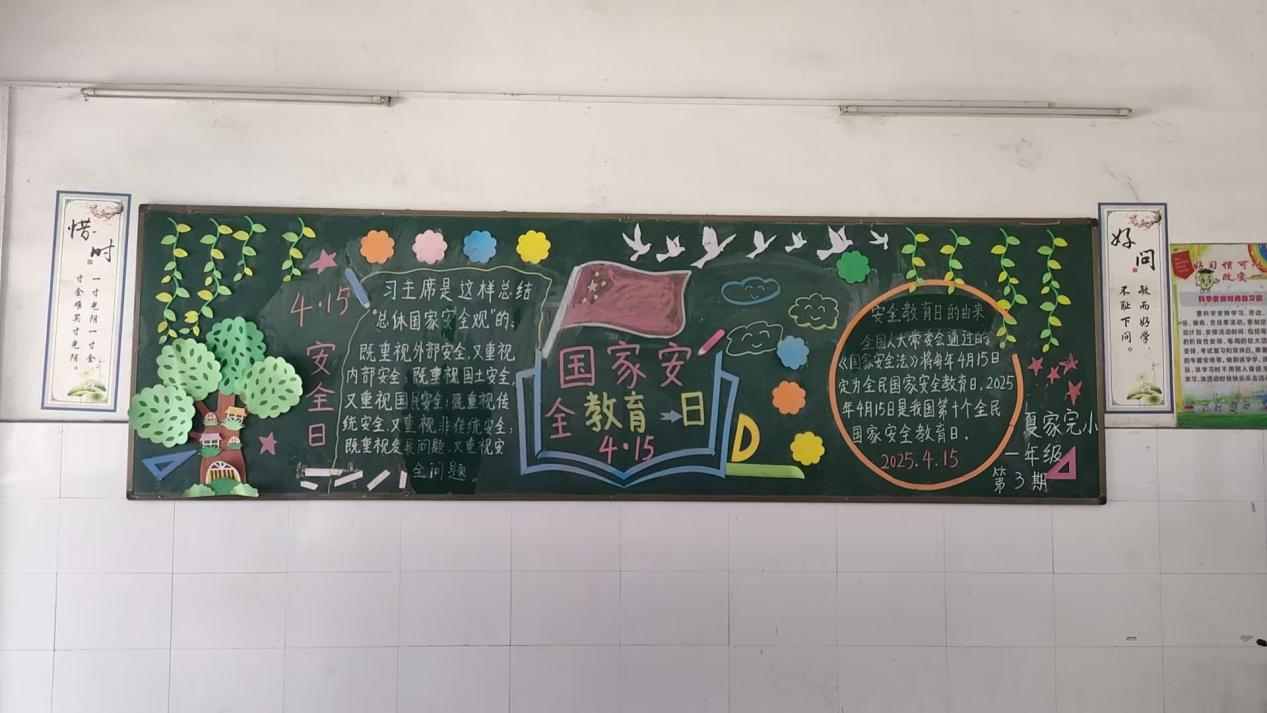 惜时
一寸光阴一寸金
寸金难买寸光阴。
4·15
安全日
习主席是这样总结
"总体国家安全观"的、
既重视外部安全,又重视
内部安全;既重视国土安全,
又重视国民安全;既重视传
统安全,又重视非传统安全;
既重视发展问题,又重视安
全问题
国家安
全教育日
4·15
安全教育日的由来
全国人大常委会通过的
《国家安全法》将每年4月15日
定为全民国家安全教育日,2025
年4月15日是我国第十个全民
国家安全教育日.
2025.4.15
夏家完小
一年级
第3期
好问
敏而好学,
不耻下问。
好习惯可以
改变
科学安排时间学习